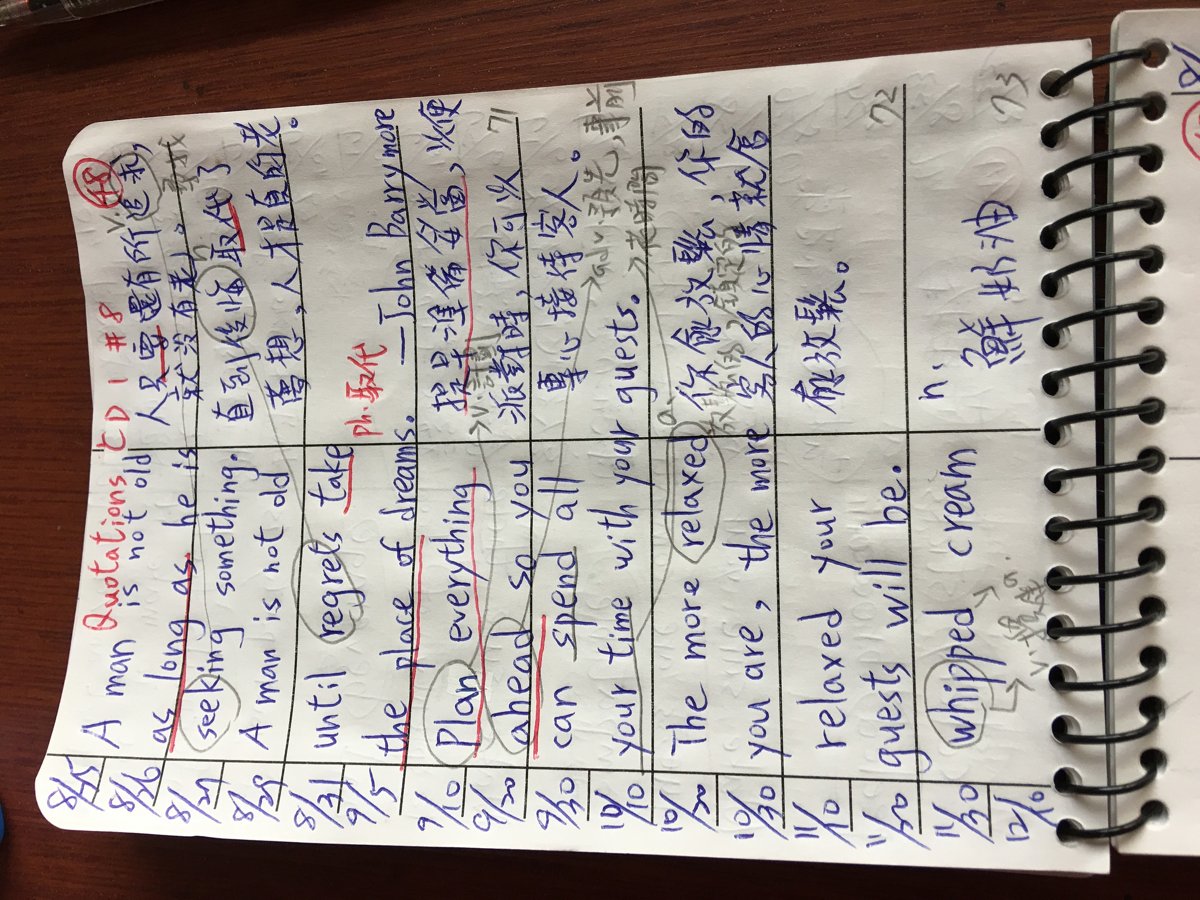 Quotations CD 1 #8 48
8/25 A man is not old 人只要還有所追求，
8/26 as long as he is 就沒有老。 v. 尋找
8/27 seeking something. 直到後悔取代了 n
8/29 A man is not old 夢想，人才是真的老。
8/31 until regrets take ph.取代
9/5 the place of dreams. —John Barrymore
9/10 Plan everything 提早準備妥當，以便
→v.計劃 71
9/20 ahead so you 派對時，你可以
9/30 can spend all 專心接待客人。
→adv.預先，事前
10/10 your time with your guests. →花時間
10/20 The more relaxed 你愈放鬆，你的
a. 放鬆的，鎮定的
10/30 you are, the more 客人的心情就會
11/10 relaxed your 愈放鬆。
11/20 guests will be. 72
11/30 whipped cream n. 鮮奶油
12/10 v. a. 73